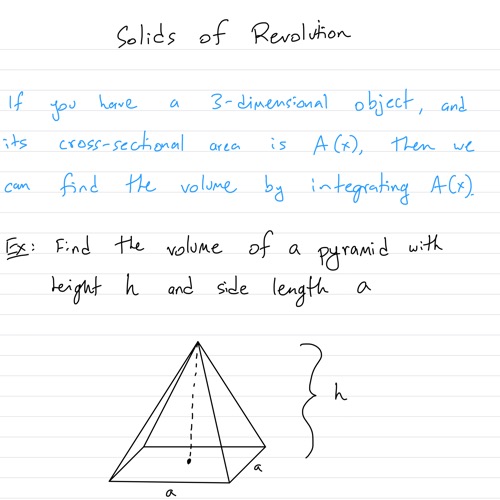 Solids of Revolution
If you have a 3-dimensional object, and
its cross-sectional area is A(x), then we
can find the volume by integrating A(x).
Ex: Find the volume of a pyramid with
height h and side length a
h
a
a